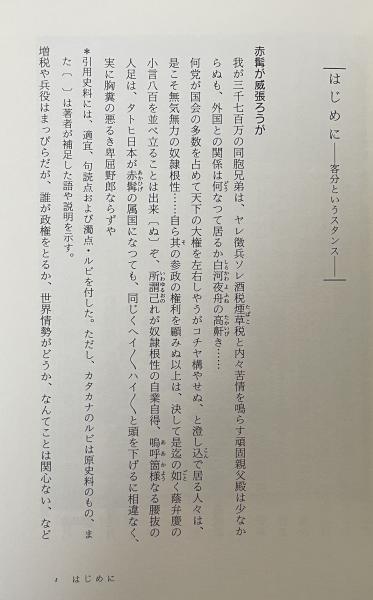 はじめに――客分というスタンス――
赤髯が威張ろうが
我が三千七百万の同胞兄弟は、ヤレ徴兵ソレ酒税煙草税と内々苦情を鳴らす頑固親父殿は少なか
らぬも、外国との関係は何なつて居るか白河夜舟の高鼾き……
何党が国会の多数を占めて天下の大権を左右しやうがコチヤ構やせぬ、と澄し込で居る人々は、
是こそ無気無力の奴隷根性……自ら其の参政の権利を顧みぬ以上は、決して是迄の如く蔭弁慶の
小言八百を並べ立ることは出来〔ぬ〕ぞ、所謂己れが奴隷根性の自業自得、嗚呼箇様なる腰抜の
人足は、タトヒ日本が赤髯の属国になつても、同じくヘイ〳〵ヘイ〳〵と頭を下げるに相違なく、
実に胸糞の悪るき卑屈野郎ならずや
＊引用史料には、適宜、句読点および濁点・ルビを付した。ただし、カタカナのルビは原史料のもの、ま
た〔　〕は著者が補足した語や説明を示す。
増税や兵役はまっぴらだが、誰が政権をとるか、世界情勢がどうか、なんてことは関心ない、など
1 はじめに